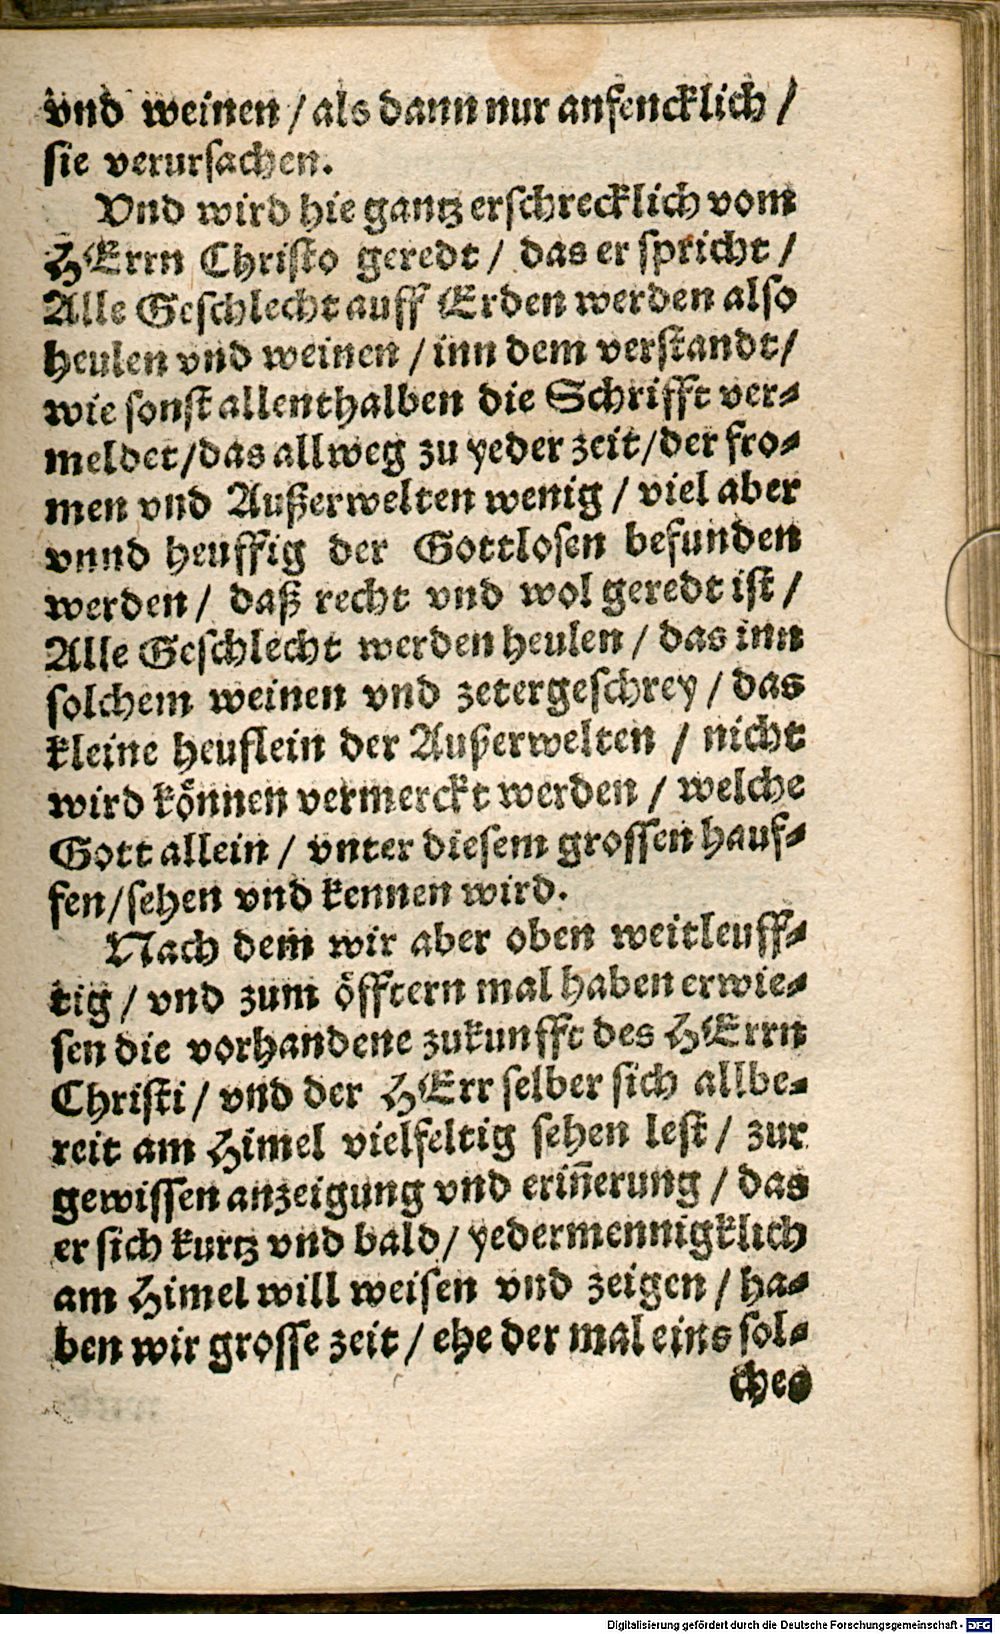 vnd weinen / als dann nur anfencklich /
sie verursachen.
Vnd wird hie gantz erschrecklich vom
HErrn Christo geredt / das er spricht /
Alle Geschlecht auff Erden werden also
heulen vnd weinen / inn dem verstandt /
wie sonst allenthalben die Schrifft ver-
meldet / das allweg zu yeder zeit / der fro-
men vnd Außerwelten wenig / viel aber
vnnd heuffig der Gottlosen befunden
werden / daß recht vnd wol geredt ist /
Alle Geschlecht werden heulen / das inn
solchem weinen vnd zetergeschrey / das
kleine heuflein der Außerwelten / nicht
wird können vermerckt werden / welche
Gott allein / vnter diesem grossen hauf-
fen / sehen vnd kennen wird.
Nach dem wir aber oben weitleuff-
tig / vnd zum öfftern mal haben erwie-
sen die vorhandene zukunfft des HErrn
Christi / vnd der HErr selber sich allbe-
reit am Himel vielfeltig sehen lest / zur
gewissen anzeigung vnd erin̄erung / das
er sich kurtz vnd bald / yedermennigklich
am Himel will weisen vnd zeigen / ha-
ben wir grosse zeit / ehe der mal eins sol-
ches
Digitalisierung gefördert durch die Deutsche Forschungsgemeinschaft - DFG